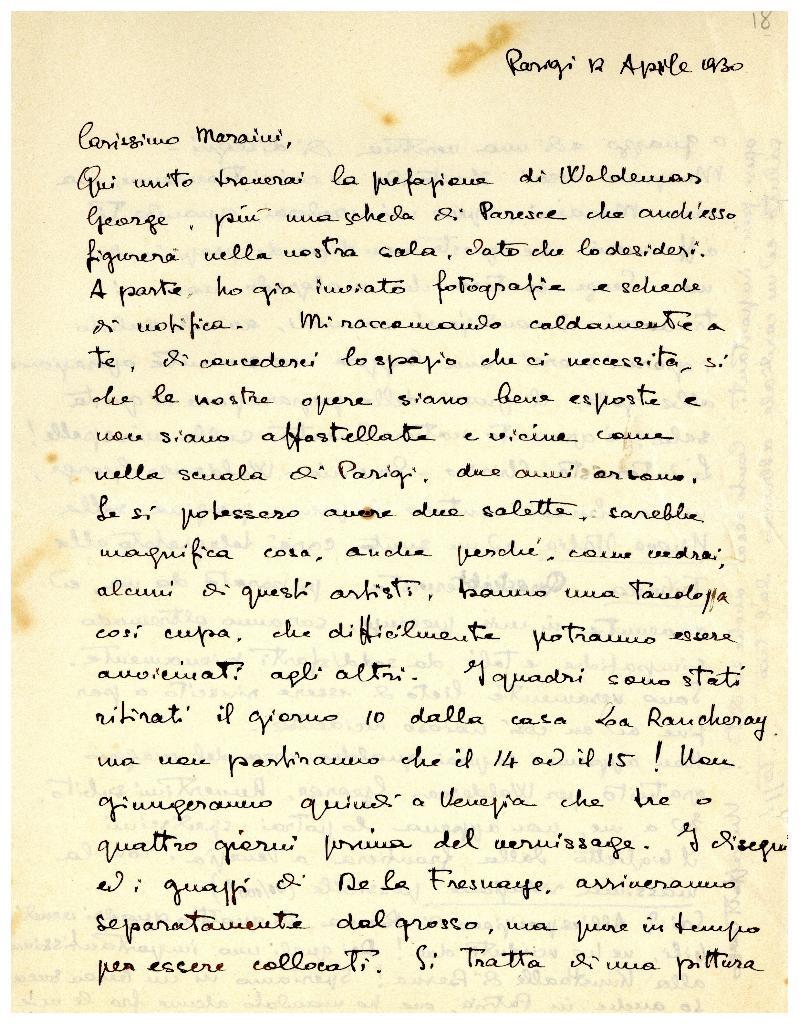 18
Parigi 12 Aprile 1930
Carissimo Maraini,
Qui unito troverai la prefazione di Waldemar
George, più una scheda di Paresce che anch'esso
figurerà nella nostra sala, dato che lo desideri.
A parte ho già inviato fotografie e schede
di notifica. Mi raccomando caldamente a
te, di concederci lo spazio che ci neccessita, sì
che le nostre opere siano bene esposte e
non siano affastellate e vicine come
nella scuola di Parigi, due anni orsono.
Se si potessero avere due salette, sarebbe
magnifica cosa, anche perché, come vedrai,
alcuni di questi artisti, hanno una tavolozza
così cupa, che difficilmente potranno essere
avvicinati agli altri. I quadri sono stati
ritirati il giorno 10 dalla casa La Rancheray
ma non partiranno che il 14 od il 15! Non
giungeranno quindi a Venezia che tre o
quattro giorni prima del vernissage. I disegni
ed i guazzi di De La Fresnaye, arriveranno
separatamente dal grosso, ma pure in tempo
per essere collocati. Si tratta di una pittura